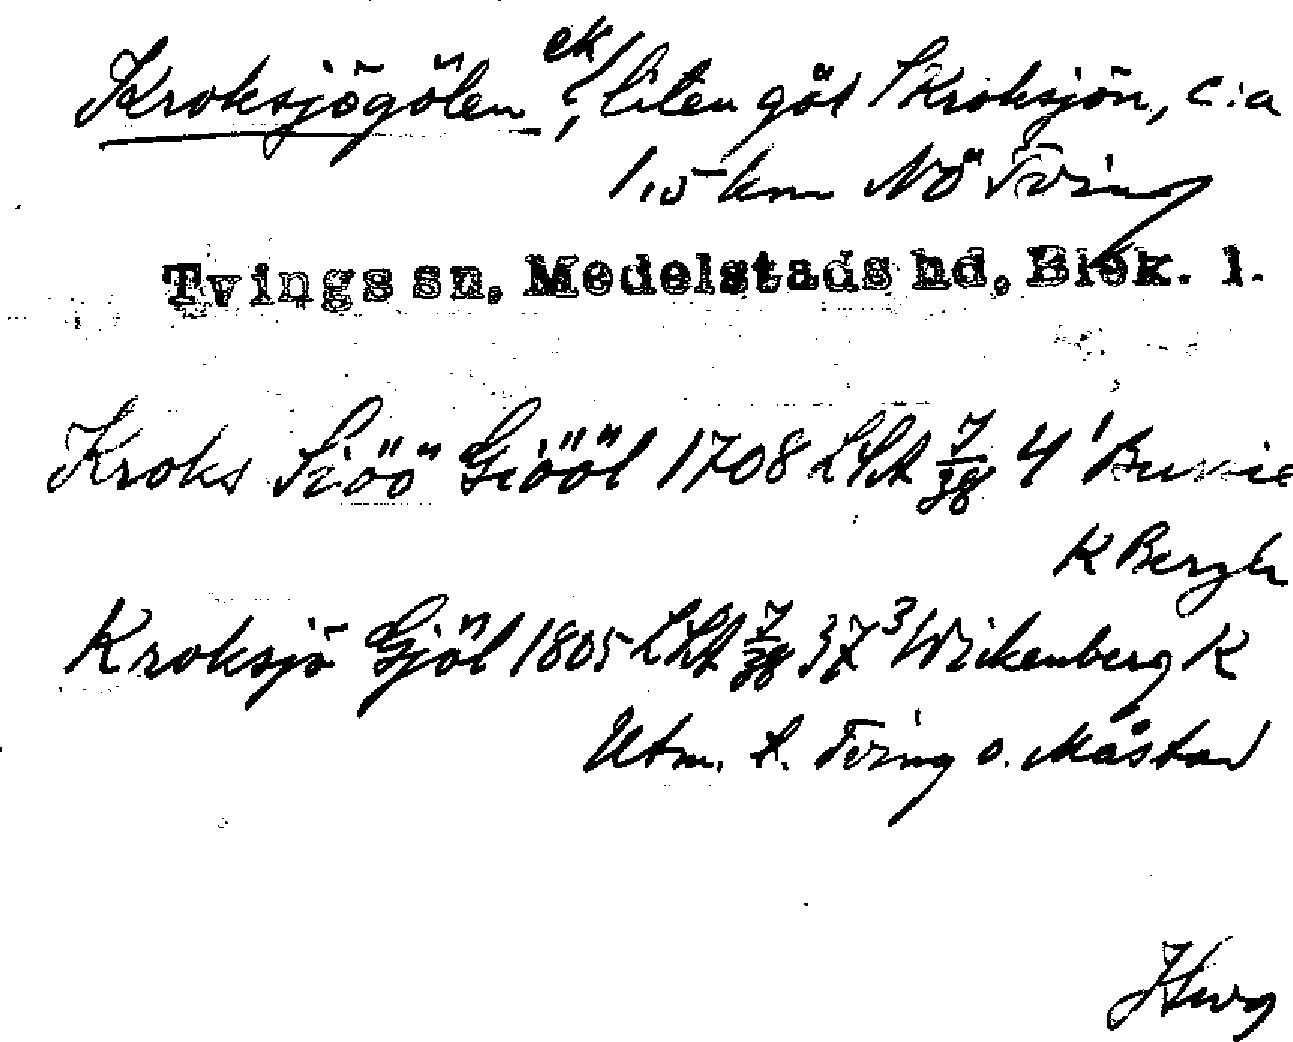 Kroksjögölen ek, liten göl S Kroksjön, c:a
1,5 km NÖ Tving
Tvings sn, Medelstads hd, Blek. l.
Kroks Siöö Giööl 1708 LSA 7/38 4¹ Burvie
K Bergh
Kroksjö Gjöl 1805 LSA 7/38 37³ Wickenberg K
Utm. t. Tving o. Måstad